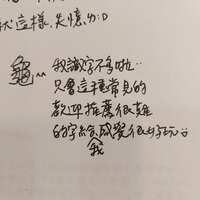 這樣, 失憶
龜~~ 我識字不多啦..
只會這種常見的
歡迎推薦很難
的字給我感覺很好玩